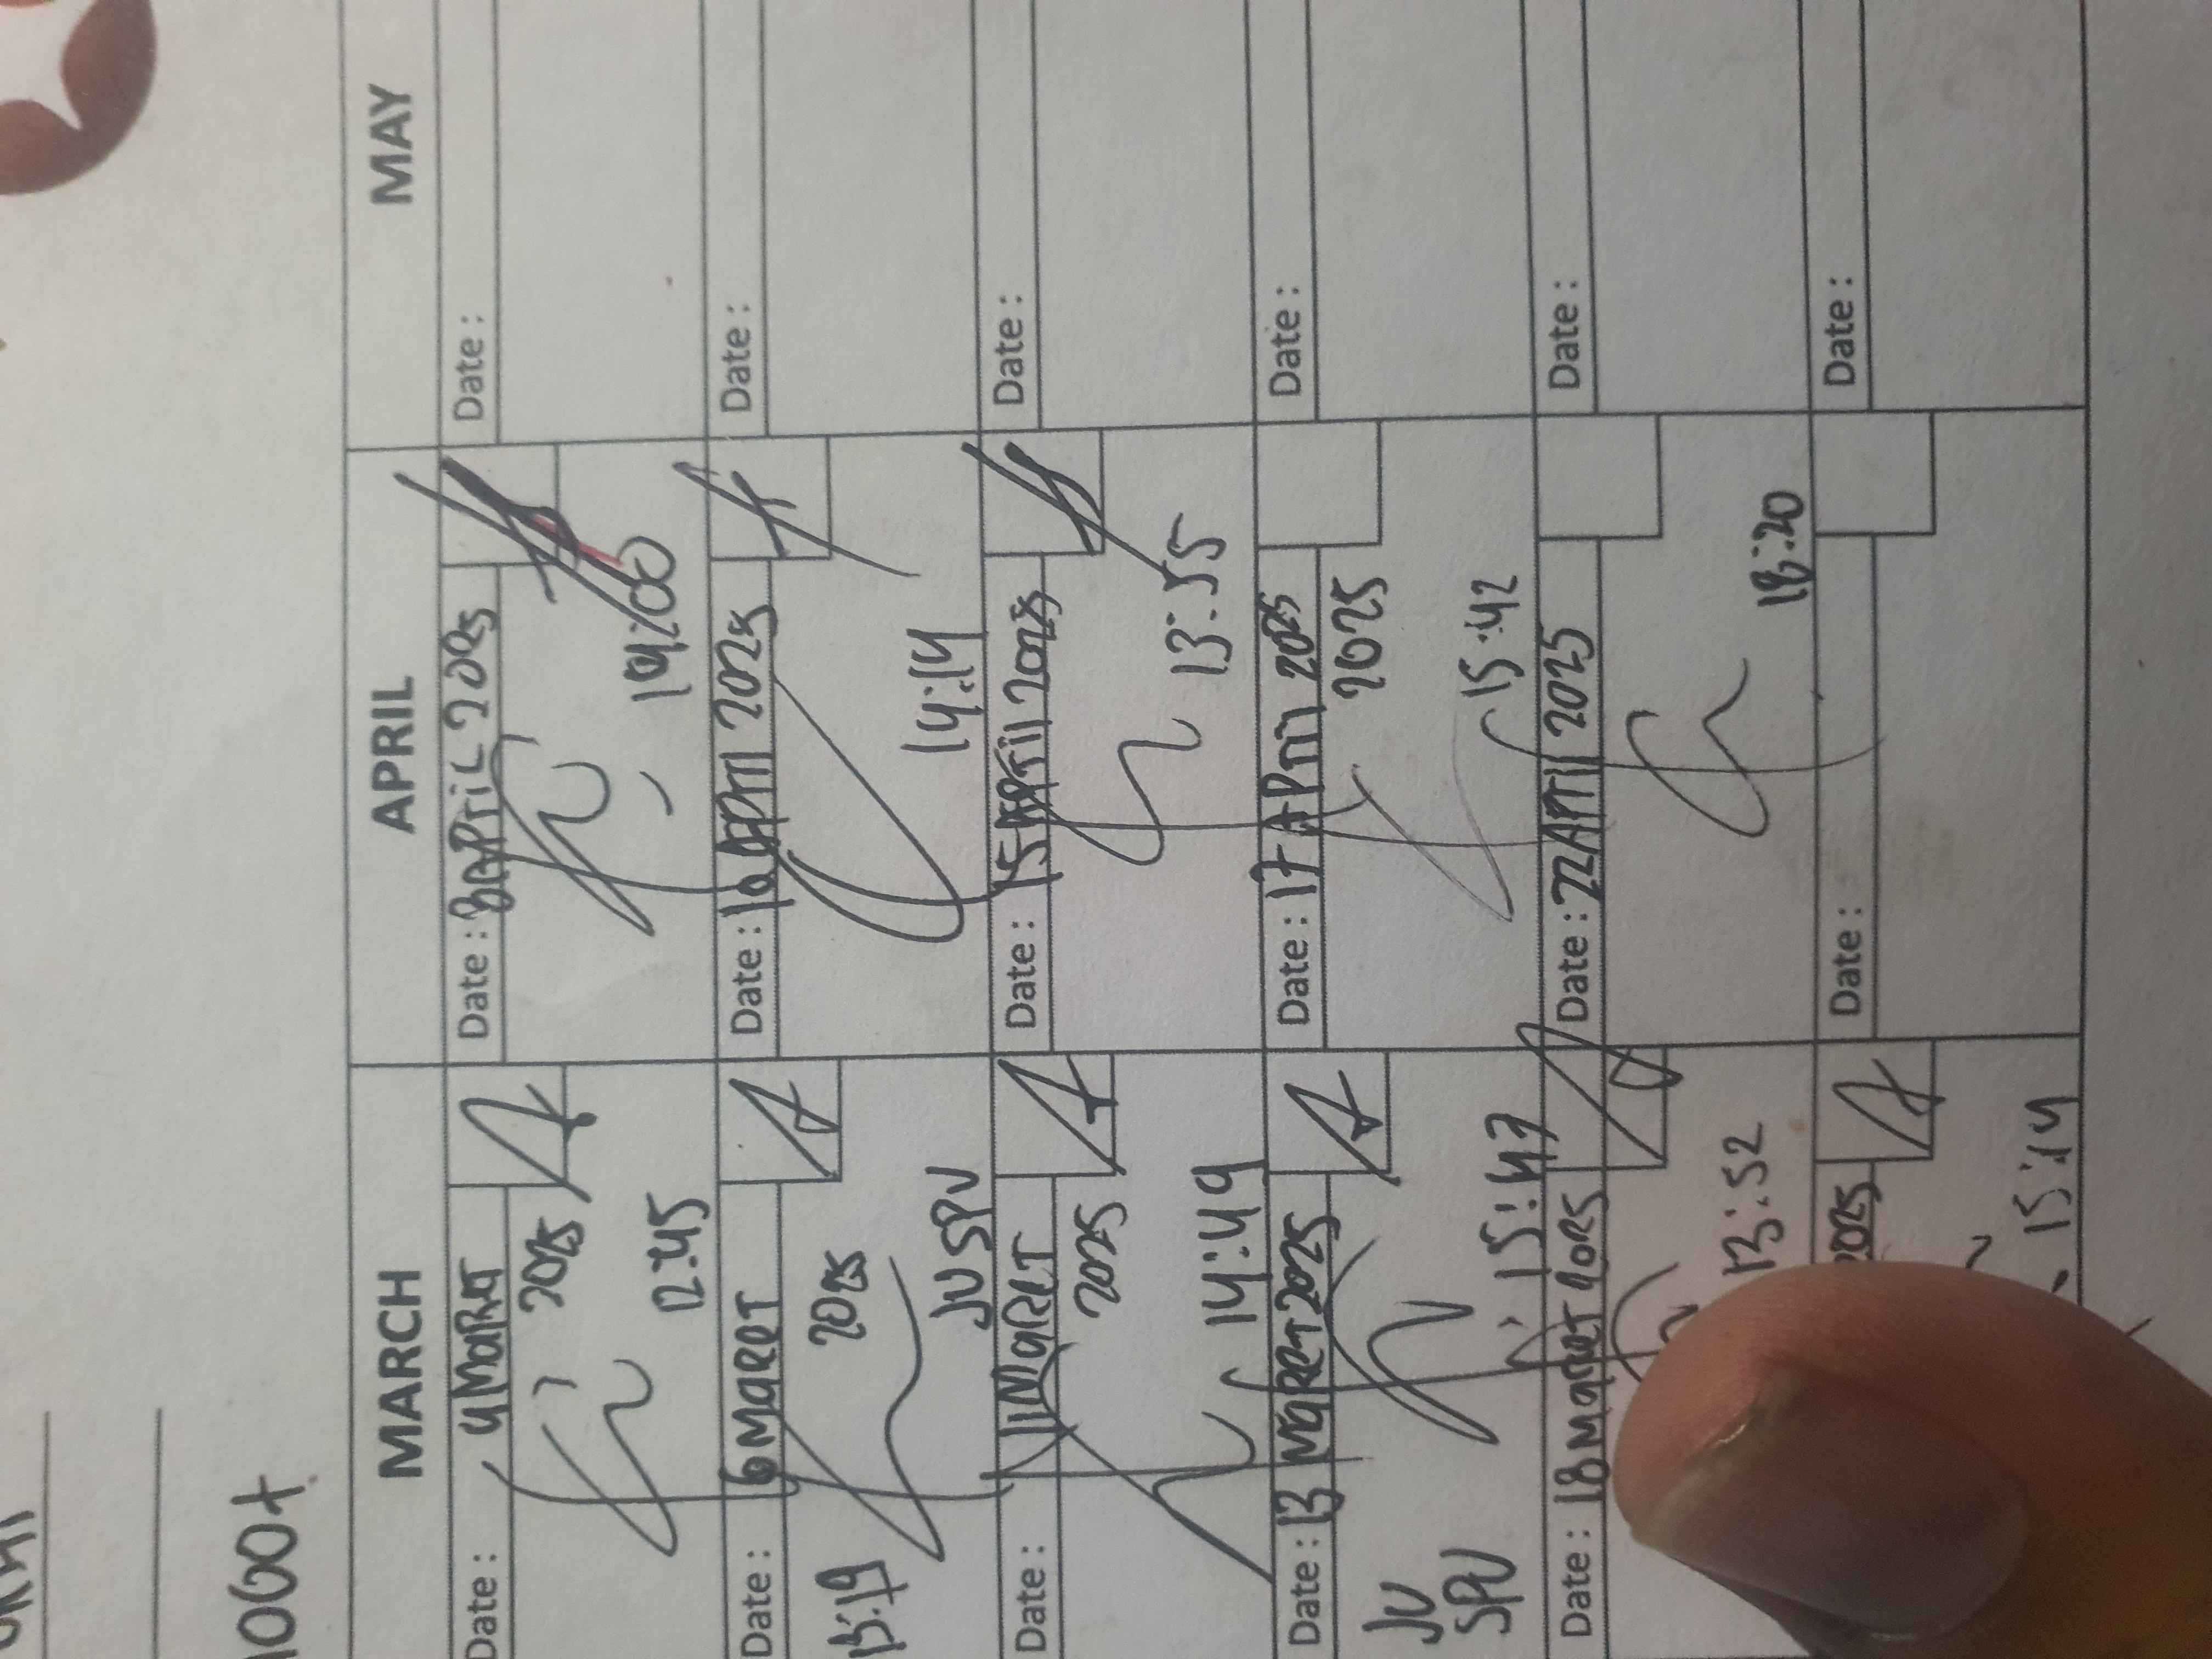 MARCH APRIL MAY
Date : 4 MaRRT
2025
12:45
Date : 8 APriL 2025
14:00
Date :
Date : 6 MaRRT
2025
13:19
JU SPV
Date : 10 APril 2025
14:14
Date :
Date : 11 MaRRT
2025
14:49
Date : 15 APril 2025
13:55
Date :
Date : 13 MaRRT 2025
JU
SPV
15:47
Date : 17 APril 2025
2025
15:42
Date :
Date : 18 MaRRT 2025
13:52
Date : 22 APril 2025
18:20
Date :
2025
15:14
Date :
Date :